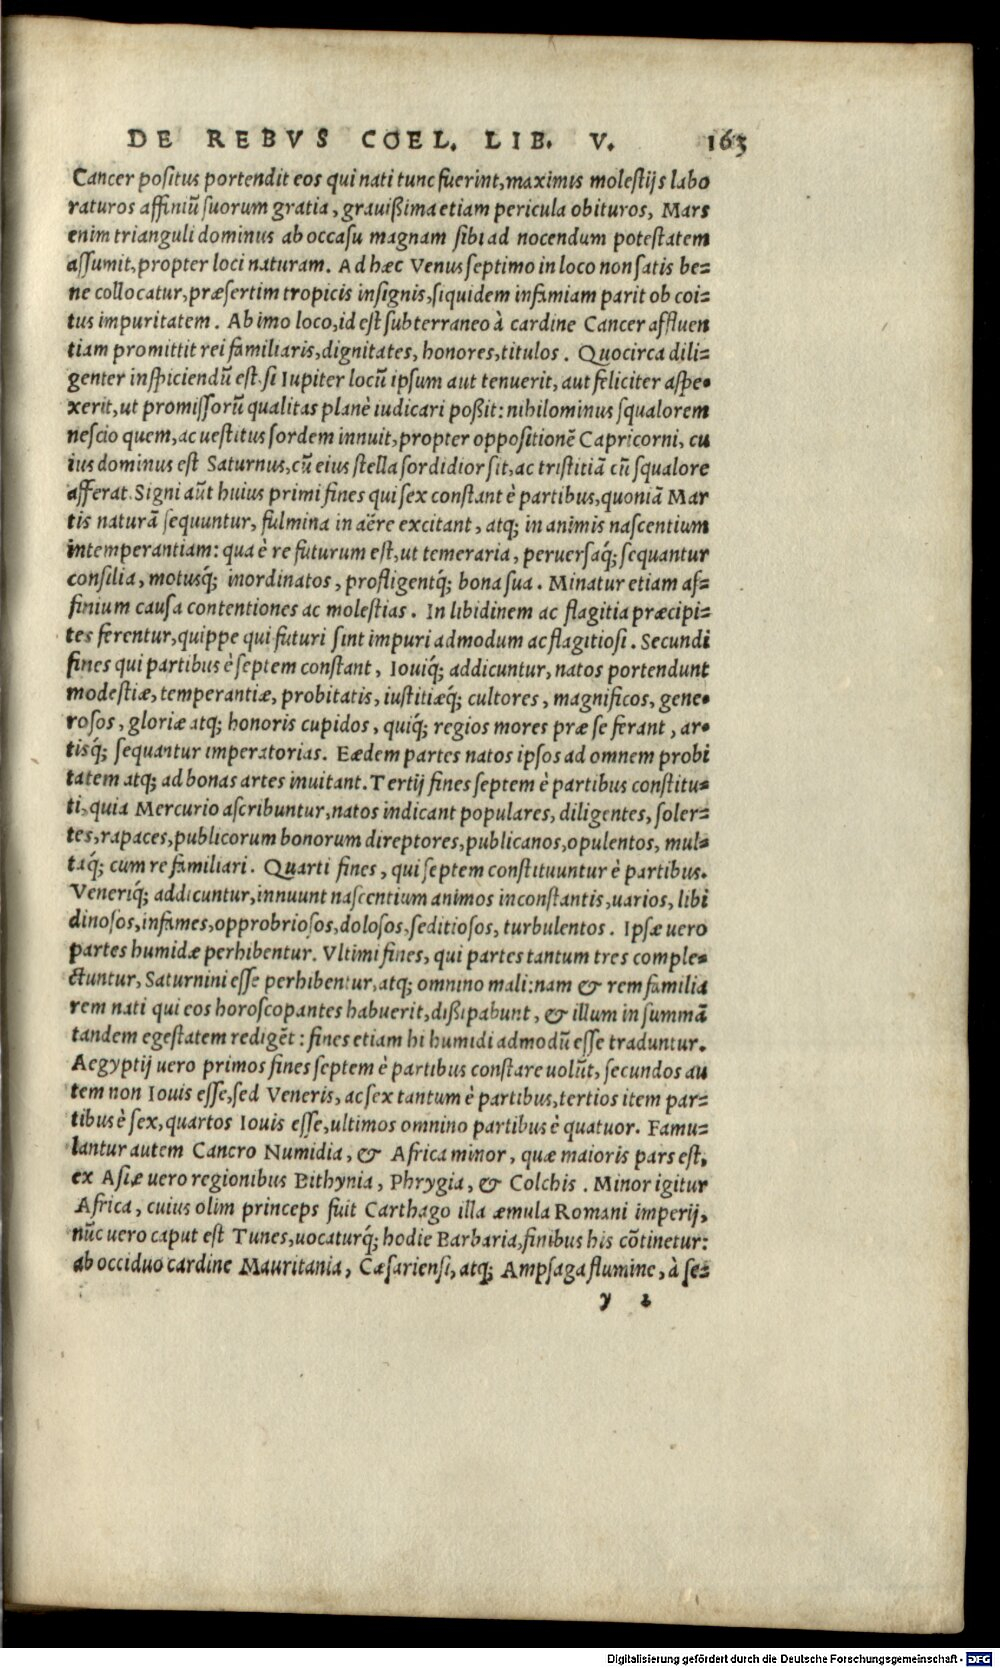 DE REBVS COEL. LIB. V. 163
Cancer positus portendit eos qui nati tunc fuerint, maximis molestijs labo
raturos affiniũ suorum gratia, grauißima etiam pericula obituros, Mars
enim trianguli dominus ab occasu magnam sibi ad nocendum potestatem
assumit, propter loci naturam. Ad hæc Venus septimo in loco non satis be=
ne collocatur, præsertim tropicis insignis, siquidem infamiam parit ob coi=
tus impuritatem. Ab imo loco, id est subterraneo à cardine Cancer affluen
tiam promittit rei familiaris, dignitates, honores, titulos. Quocirca dili=
genter inspiciendũ est, si Iupiter locũ ipsum aut tenuerit, aut feliciter aspe=
xerit, ut promissorũ qualitas planè iudicari poßit: nihilominus squalorem
nescio quem, ac uestitus sordem innuit, propter oppositionẽ Capricorni, cu
ius dominus est Saturnus, cũ eius stella sordidior sit, ac tristitiã cũ squalore
afferat. Signi aũt huius primi fines qui sex constant è partibus, quoniã Mar
tis naturã sequuntur, fulmina in aëre excitant, atq; in animis nascentium
intemperantiam: qua è re futurum est, ut temeraria, peruersaq́; sequantur
consilia, motusq́; inordinatos, profligentq́; bona sua. Minatur etiam af=
finium causa contentiones ac molestias. In libidinem ac flagitia præcipi=
tes ferentur, quippe qui futuri sint impuri admodum ac flagitiosi. Secundi
fines qui partibus è septem constant, Iouiq́; addicuntur, natos portendunt
modestiæ, temperantiæ, probitatis, iustitiæq́; cultores, magnificos, gene=
rosos, gloriæ atq; honoris cupidos, quiq́; regios mores præ se ferant, ar=
tisq́; sequantur imperatorias. Eædem partes natos ipsos ad omnem probi
tatem atq; ad bonas artes inuitant. Tertij fines septem è partibus constitu=
ti, quia Mercurio ascribuntur, natos indicant populares, diligentes, soler=
tes, rapaces, publicorum bonorum direptores, publicanos, opulentos, mul=
taq́; cum re familiari. Quarti fines, qui septem constituuntur è partibus.
Veneriq́; addicuntur, innuunt nascentium animos inconstantis, uarios, libi
dinosos, infames, opprobriosos, dolosos, seditiosos, turbulentos. Ipsæ uero
partes humidæ perhibentur. Vltimi fines, qui partes tantum tres comple=
ctuntur, Saturnini esse perhibentur, atq; omnino mali: nam & rem familia
rem nati qui eos horoscopantes habuerit, dißipabunt, & illum in summã
tandem egestatem rediget̃: fines etiam hi humidi admodũ esse traduntur.
Aegyptij uero primos fines septem è partibus constare uolũt, secundos au
tem non Iouis esse, sed Veneris, ac sex tantum è partibus, tertios item par=
tibus è sex, quartos Iouis esse, ultimos omnino partibus è quatuor. Famu=
lantur autem Cancro Numidia, & Africa minor, quæ maioris pars est,
ex Asiæ uero regionibus Bithynia, Phrygia, & Colchis. Minor igitur
Africa, cuius olim princeps fuit Carthago illa æmula Romani imperij,
nũc uero caput est Tunes, uocaturq́; hodie Barbaria, finibus his cõtinetur:
ab occiduo cardine Mauritania, Cæsariensi, atq; Ampsaga flumine, à se=
y 2
Digitalisierung gefördert durch die Deutsche Forschungsgemeinschaft - DFG